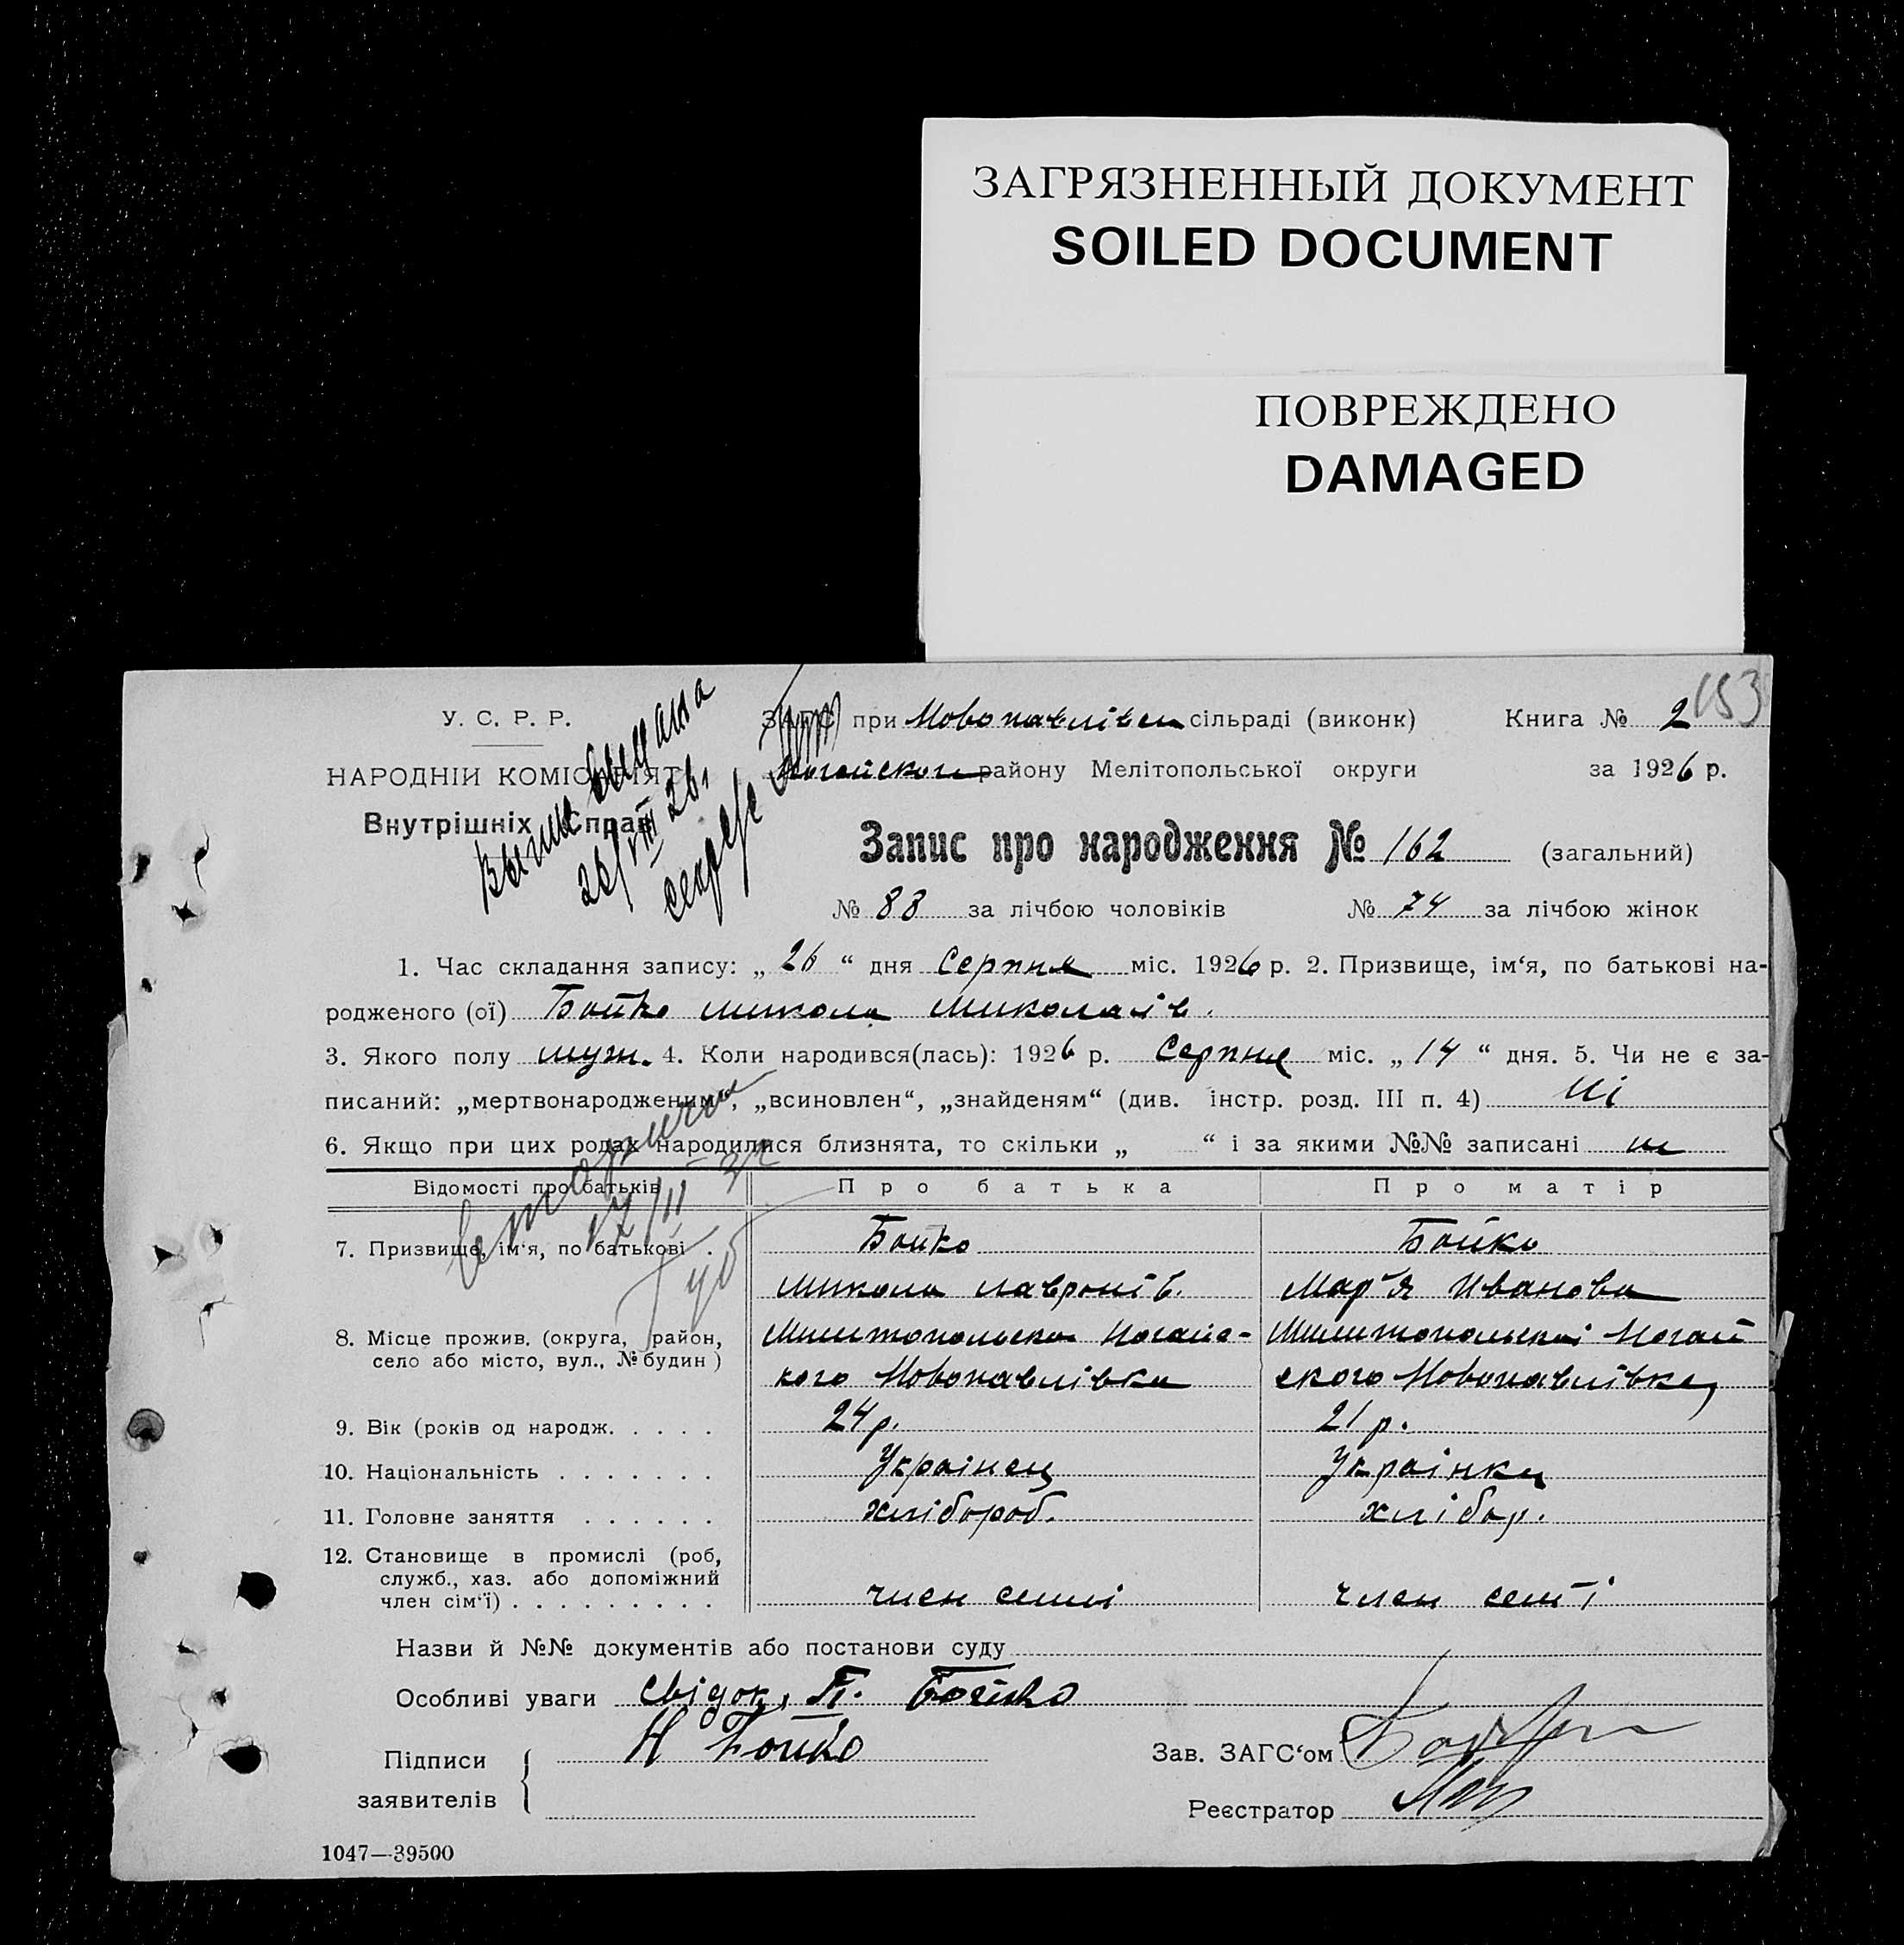 ЗАГРЯЗНЕННЫЙ ДОКУМЕНТ
SOILED DOCUMENT
ПОВРЕЖДЕНО
DAMAGED
153
У. С. Р. Р.
НАРОДНІЙ КОМІСАРІЯТ
Внутрішніх Справ
26/VIII 26
ЗАГС при Новопавлівск сільраді (виконк) Книга № 2
Ногайского району Мелітопольської округи за 1926 р.
Запис про народження № 162 (загальний)
№ 88 за лічбою чоловіків № 74 за лічбою жінок
1. Час складання запису: „ 26 “ дня Серпня міс. 1926 р. 2. Призвище, ім‘я, по батькові на-
родженого (ої) Бойко Микола Миколаів.
3. Якого полу муж. 4. Коли народився(лась): 1926 р. Серпня міс. „ 14 “ дня. 5. Чи не є за-
писаний: „мертвонародженим“, „всиновлен“, „знайденям“ (див. інстр. розд. III п. 4) Ні
6. Якщо при цих родах народилися близнята, то скільки „ “ і за якими №№ записані
Відомості про батьків Про батька Про матір
7. Призвище, ім‘я, по батькові . Бойко Бойко
Микола Лавронів. Мар‘я Иванова
8. Місце прожив. (округа, район, село або місто, вул., № будин ) Милитопольска Ногайс- Милитопольскоі Ногай
кого Новопавлівка ского Новопавлівка
9. Вік (років од народж. . . . . 24 р. 21 р.
10. Національність . . . . . . . Украінец Украінка
11. Головне заняття . . . . . . хлібороб. хлібор.
12. Становище в промислі (роб,
служб., хаз. або допоміжний
член сім‘ї) . . . . . . . . . член семі член семі
Назви й №№ документів або постанови суду
Особливі уваги Свідок, П. Бойко
Підписи заявителів Н Бойко Зав. ЗАГС‘ом
Реєстратор
1047—39500